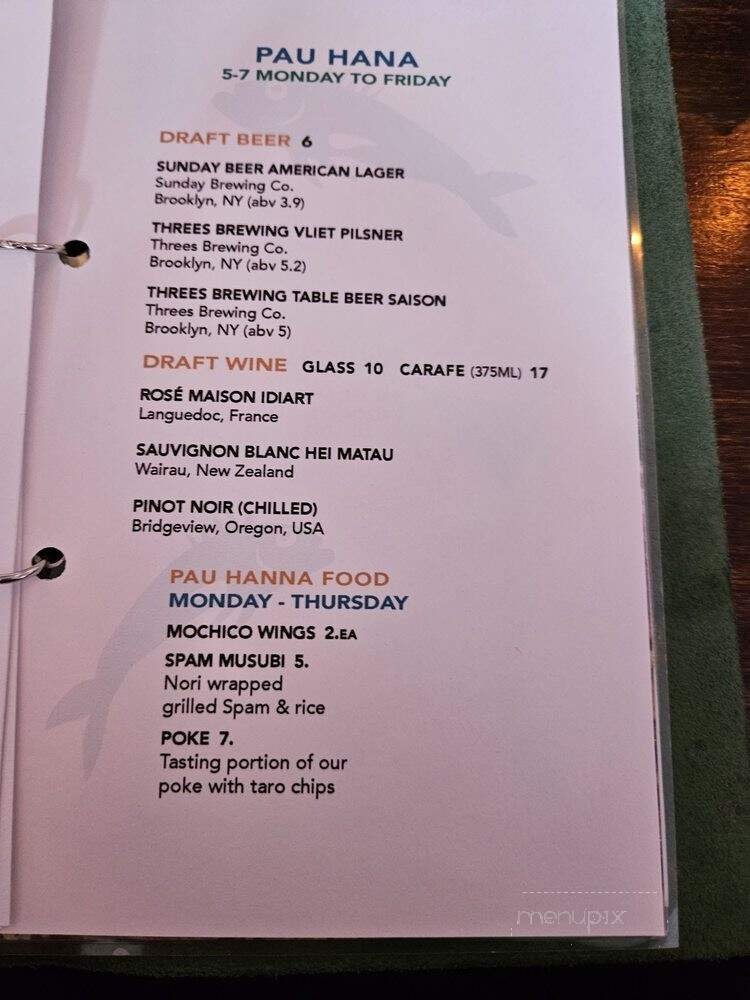 PAU HANA
5-7 MONDAY TO FRIDAY
DRAFT BEER 6
SUNDAY BEER AMERICAN LAGER
Sunday Brewing Co.
Brooklyn, NY (abv 3.9)
THREES BREWING VLIET PILSNER
Threes Brewing Co.
Brooklyn, NY (abv 5.2)
THREES BREWING TABLE BEER SAISON
Threes Brewing Co.
Brooklyn, NY (abv 5)
DRAFT WINE GLASS 10 CARAFE (375ML) 17
ROSÉ MAISON IDIART
Languedoc, France
SAUVIGNON BLANC HEI MATAU
Wairau, New Zealand
PINOT NOIR (CHILLED)
Bridgeview, Oregon, USA
PAU HANNA FOOD
MONDAY - THURSDAY
MOCHICO WINGS 2.EA
SPAM MUSUBI 5.
Nori wrapped
grilled Spam & rice
POKE 7.
Tasting portion of our
poke with taro chips
menupix